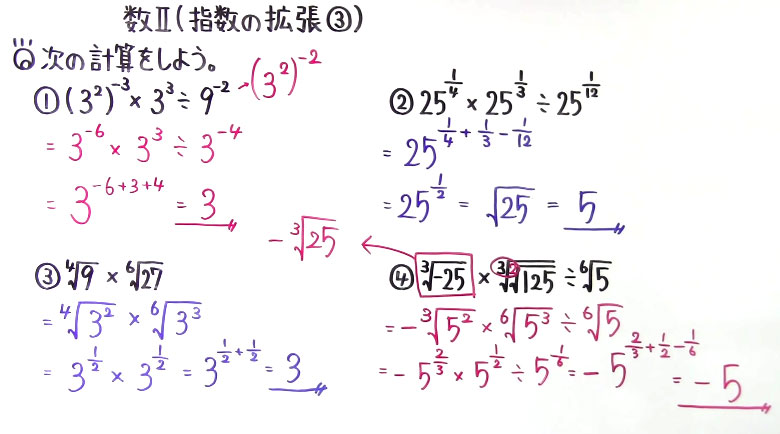 数Ⅱ(指数の拡張③)
Q 次の計算をしよう。
① (3²)⁻³ × 3³ ÷ 9⁻² → (3²)⁻²
= 3⁻⁶ × 3³ ÷ 3⁻⁴
= 3⁻⁶⁺³⁺⁴ = 3
② 25^{1/4} × 25^{1/3} ÷ 25^{1/12}
= 25^{1/4 + 1/3 - 1/12}
= 25^{1/2} = √25 = 5
③ ⁴√9 × ⁶√27
= ⁴√3² × ⁶√3³
= 3^{1/2} × 3^{1/2} = 3^{1/2 + 1/2} = 3
-³√25
④ ³√-25 × ³√²√125 ÷ ⁶√5
= -³√5² × ⁶√5³ ÷ ⁶√5
= -5^{2/3} × 5^{1/2} ÷ 5^{1/6} = -5^{2/3 + 1/2 - 1/6} = -5